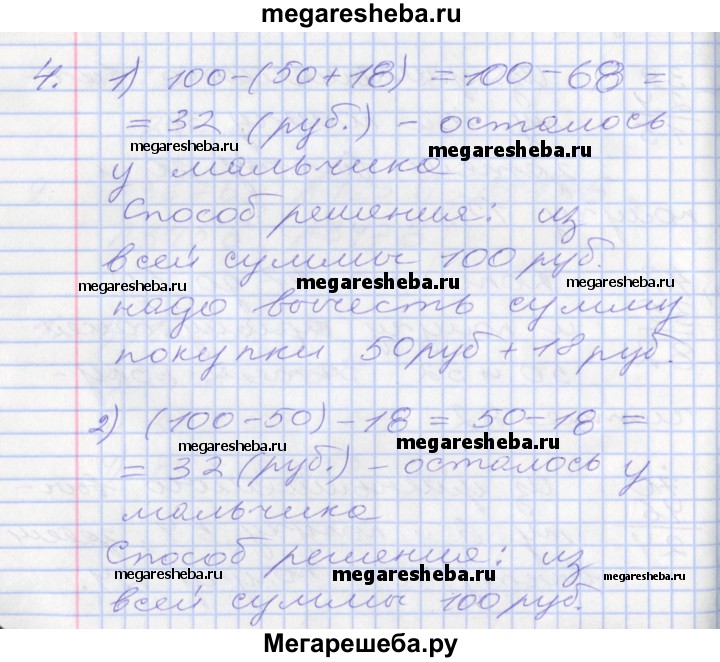 megaresheba.ru
4. 1) 100-(50+18) = 100-68 =
= 32 (руб.) - осталось
megaresheba.ru megaresheba.ru
у мальчика
Способ решения: из
всей суммы 100 руб.
megaresheba.ru megaresheba.ru megaresheba.ru
надо вычесть сумму
покупки 50 руб + 18 руб.
2) (100-50)-18 = 50-18 =
megaresheba.ru megaresheba.ru megaresheba.ru
= 32 (руб.) - осталось у
мальчика
Способ решения: из
megaresheba.ru megaresheba.ru megaresheba.ru
всей суммы 100 руб.
Мегарешеба.ру